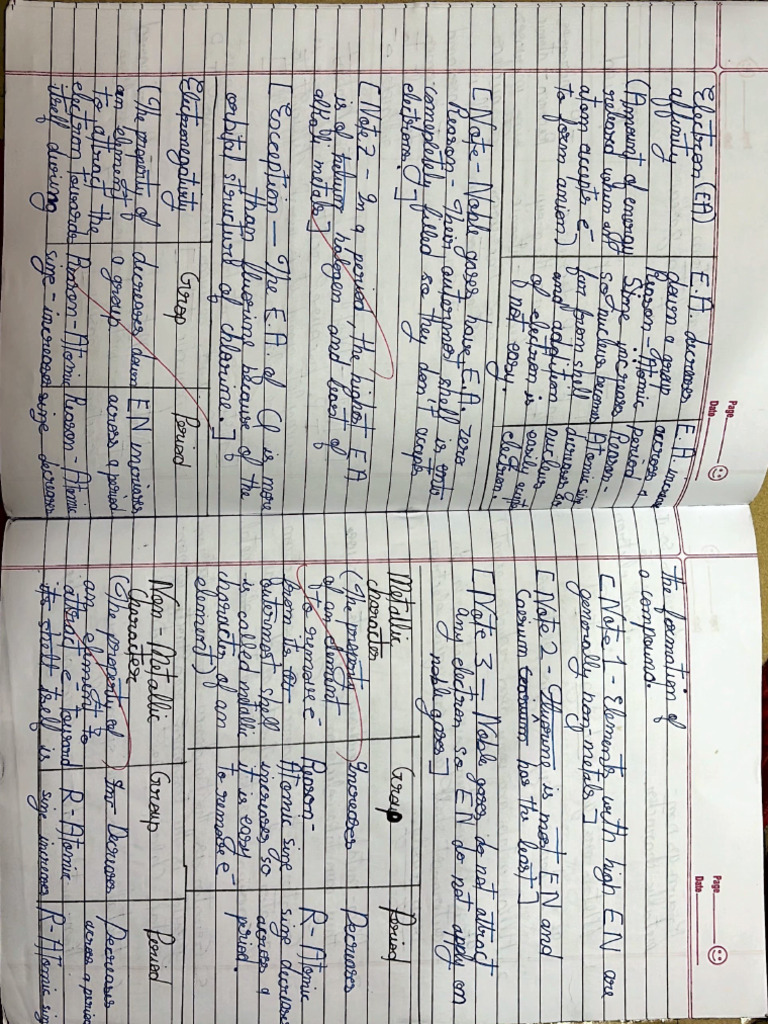 Page
Date
Electron (EA)
affinity
(Amount of energy
released when an
atom accepts e-
to form anion)
E.A. decreases
down a group
Reason - Atomic
Size increases
so nucleus becomes
far from shell
and addition
of electron is
not easy.
E.A. increases
across a
period
Reason -
Atomic size
decreases so
nucleus
easily
electron.
[Note - Noble gases have E.A. zero
Reason - Their outermost shell is
completely filled so they don't accept
electron.]
[Note 2 - In a period, the highest EA
is of halogen and least of
alkali metals]
[Exception - The E.A. of Cl is more
than fluorine because of the
orbital structure of chlorine.]
Group
Period
Electronegativity
(The property of
an element
to attract the
electron towards
itself during
decreases down
a group
Reason - Atomic
size - increases
EN increases
across a period
Reason - Atomic
size decreases
Page
Date
the formation of
a compound.
[Note 1 - Elements with high EN are
generally non-metals]
[Note 2 - Fluorine is most EN and
has the least]
[Note 3 - Noble gases do not attract
any electron so EN do not apply on
noble gases]
Group
Period
Metallic
character
(The property
of an element
to remove e-
from its
outermost shell
is called metallic
character of an
element)
Increases
Reason -
Atomic size
increases, so
it is easy
to remove e-
Decreases
R - Atomic
size decreases
across a
period.
Group
Period
Non-Metallic
Character
(The property of
an element to
attract e- toward
its shell itself is
Decreases
R - Atomic
size increases
Decreases
across a period
R - Atomic size